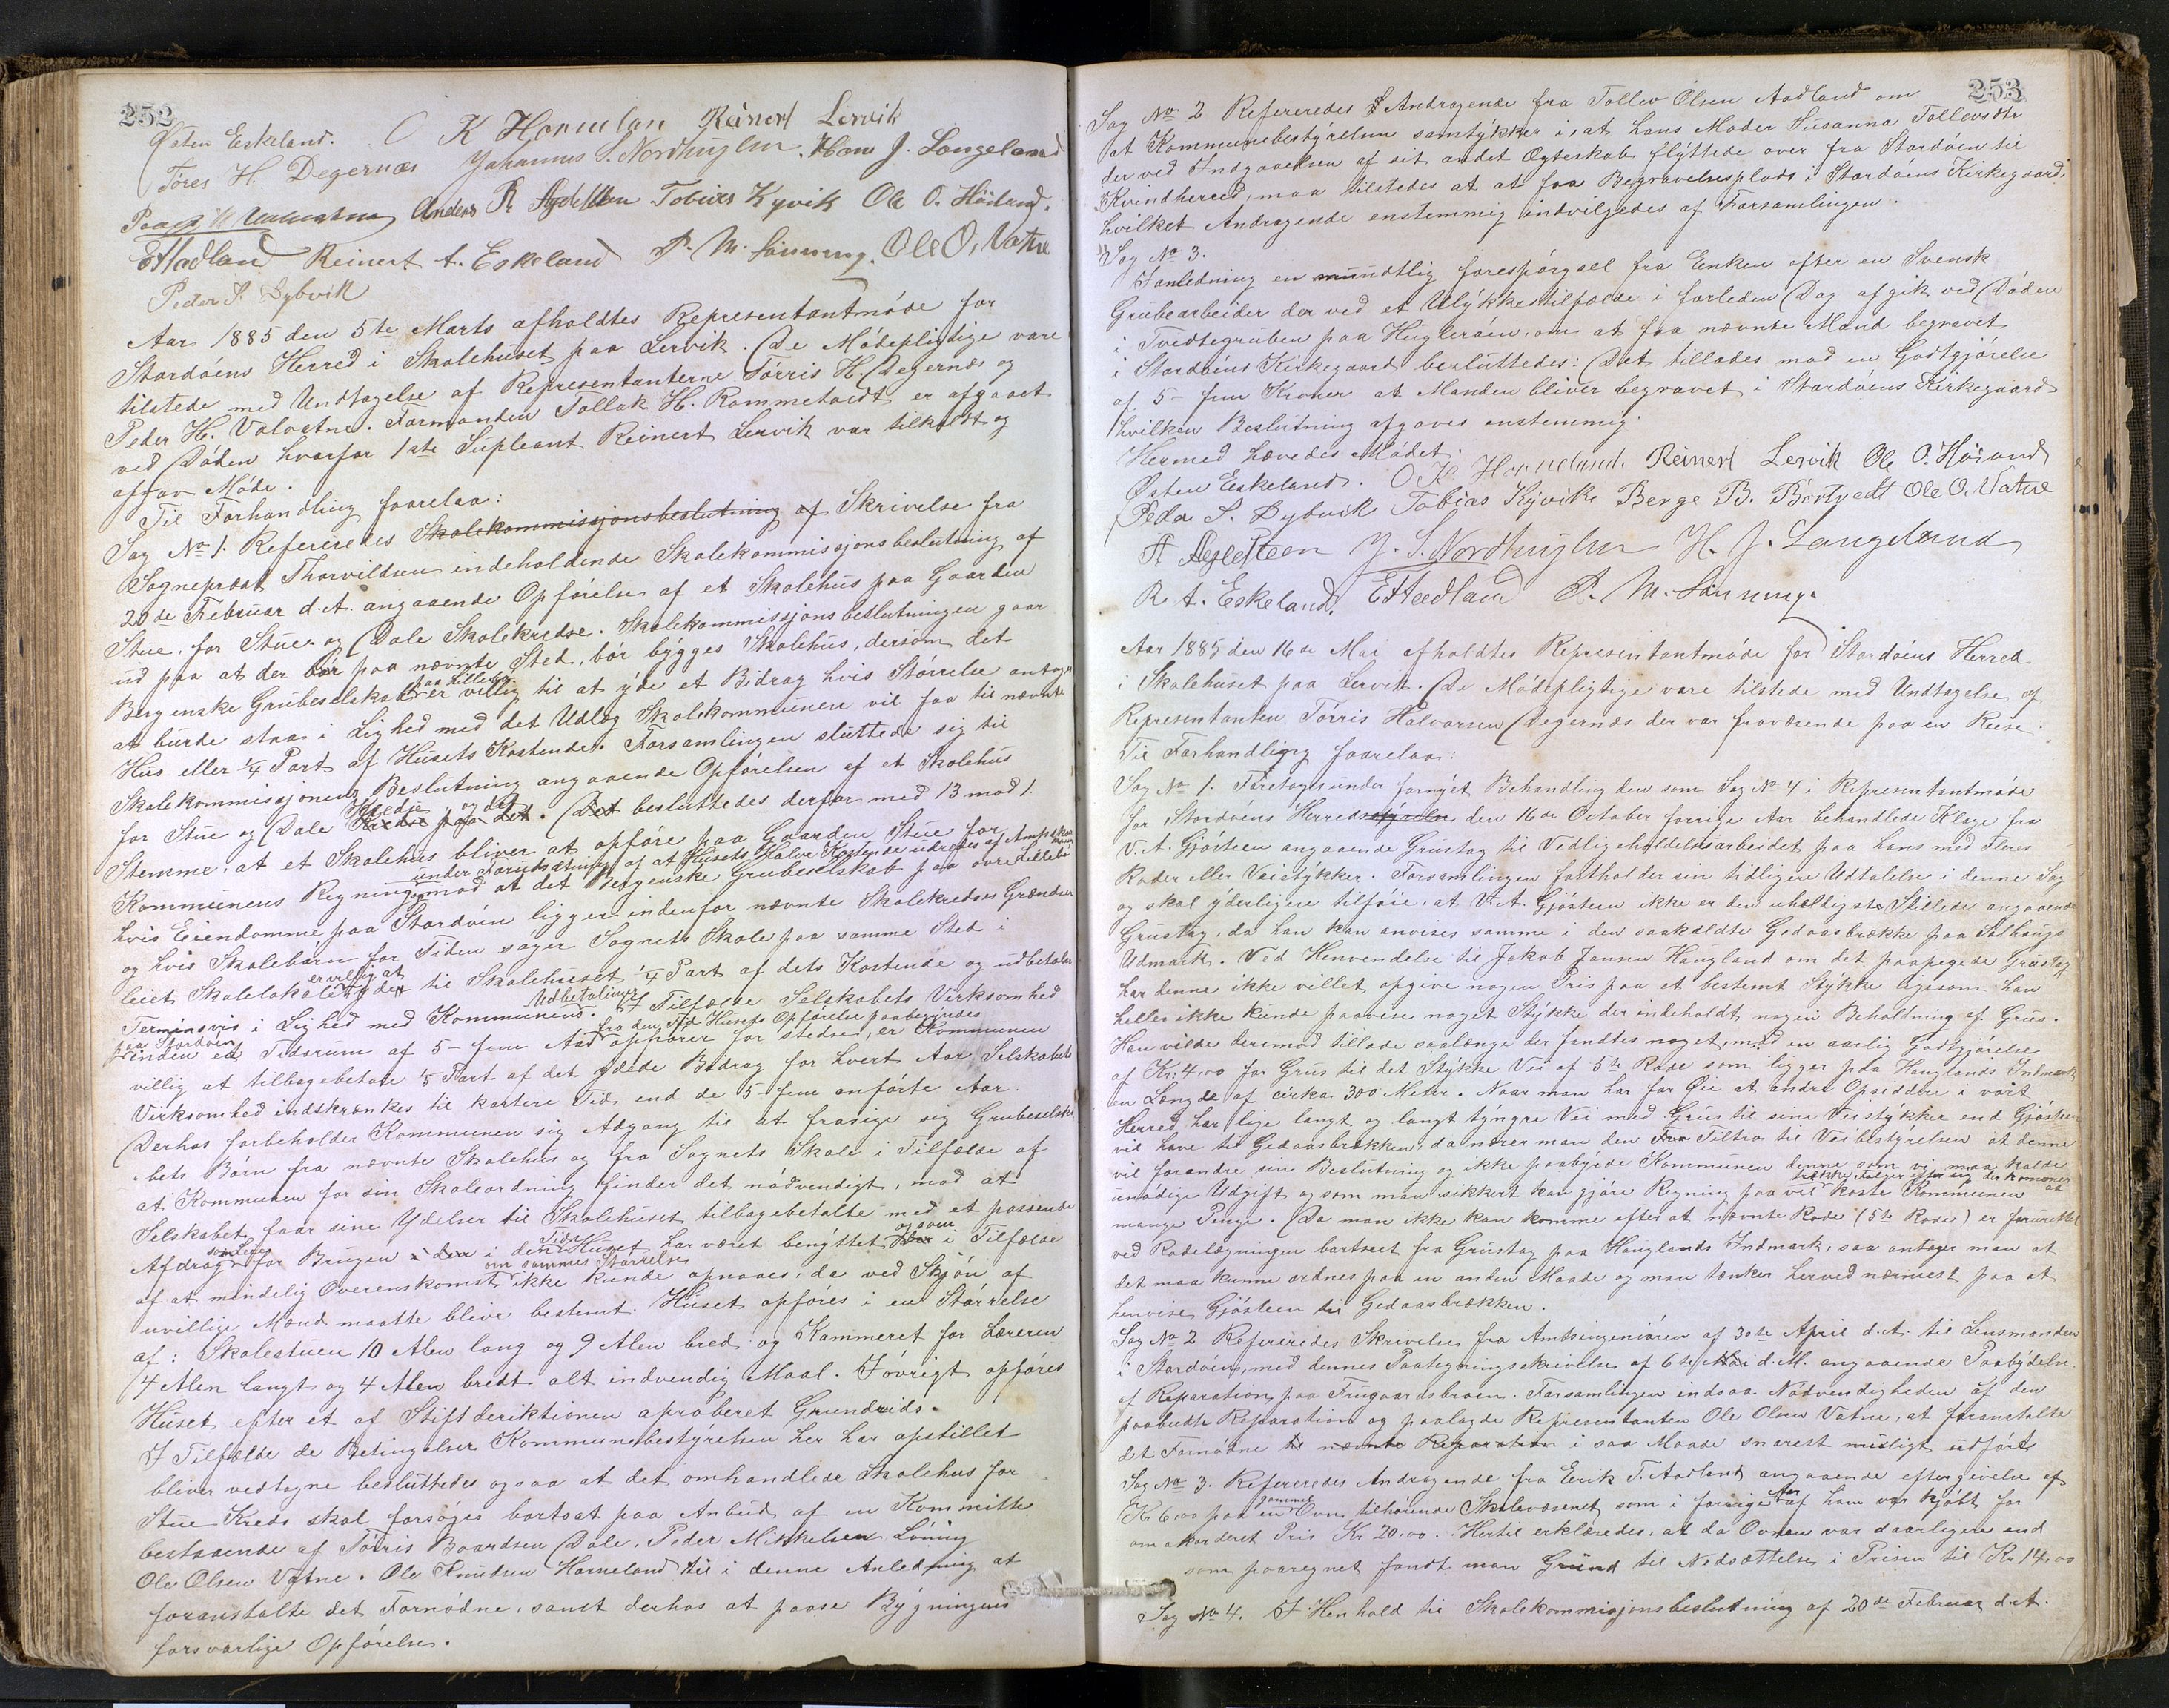 252
Østen Eskeland. O K Horneland Reinert Lervik
Tøres H. Degernæs Johannus S. Nordhuglen. Hans J. Langeland
Anders R Agdesteen Tobias Kyvik Ole O. Höiland.
E Hadland Reinert A. Eskeland P. M. Lönning. Ole O. Vatne
Peder S. Dybvik
Aar 1885 den 5te Marts afholdtes Representantmøde for
Stordøens Herred i Skolehuset paa Lervik. De Mødepligtige vare
tilstede med Undtagelse af Representanterne Törris H. Degernæs og
Peder H. Valvatne. Formanden Tollak H. Rommetvedt er afgaaet
ved Døden hvorfor 1ste Supleant Reinert Lervik var tilkaldt og
afgav Møde.
Til Forhandling forelaa:
Sag No 1. Refereredes Skolekommissjonsbeslutning af Skrivelse fra
Sogneprest Thorvildsen indeholdende Skolekommissjonsbeslutning af
20de Februar d.A. angaaende Opførelse af et Skolehus paa Gaarden
Stue, for Stue og Dale Skolekredse. Skolekommissjonsbeslutningen gaar
ud paa at der bør paa nævnte Sted, bör bygges Skolehus, dersom det
Bergenske Grubeselskab paa Lillebø er villig til at yde et Bidrag hvis Størrelse antoges
at burde staa i Lighed med det Udlæg Skolekommunen vil faa til nævnte
Hus eller 1/4 Part af Husets Kostende. Forsamlingen sluttede sig til
Skolekommissjonens Beslutning angaaende Opførelsen af et Skolehus
for Stue og Dale Kredse og det Kredse paa det. Det besluttedes derfor med 13 mod 1
Stemme, at et Skolehus bliver at opføre paa Gaarden Stue for
Kommunens Regning under Forudsætning af at Husets halve Kostende udredes af Amtskassen mod at det Bergenske Grubeselskab paa øvre Lillebø
hvis Eiendomme paa Stordøen ligger indenfor nævnte Skolekredses Grændser
og hvis Skolebørn for Tiden søger Sognets Skole paa samme Sted i
leiet Skolelokale er villig at yder til Skolehuset 1/4 Part af dets Kostende og udbetaler
Terminsvis i Lighed med Kommunens Udbetalinger. I Tilfælde Selskabets Virksomhed
paa Stordøen inden et Tidsrum af 5 – fem Aar fra den Tid Husets Opførelse paabegyndes ophører for stedse, er Kommunen
villig at tilbagebetale 1/5 Part af det ydede Bidrag for hvert Aar Selskabets
Virksomhed indskrænkes til kortere Tid end de 5 fem anførte Aar.
Derhos forbeholder Kommunen sig Adgang til at frasige sig Grubeselska-
bets Børn fra nævnte Skolehus og fra Sognets Skole i Tilfælde af
at Kommunen for sin Skoleordning finder det nødvendigt, mod at
Selskabet faar sine Ydelser til Skolehuset tilbagebetalte med et passende
Afdrag for Brugen i den i den Tid Huset har været benyttet og som i Tilfælde
af at mindelig Overenskomst om sammes Størrelse ikke kunde opnaaes, da ved Skjøn af
uvillige Mænd maatte blive bestemt. Huset opføres i en Størrelse
af: Skolestuen 10 Alen lang og 9 Alen bred og Kammeret for Læreren
4 Alen langt og 4 Alen bredt alt indvendig Maal. Iøvrigt opføres
Huset efter et af Stiftderiktionen aproberet Grundrids.
I Tilfælde de Betingelser Kommunebestyrelsen her har opstillet
bliver vedtagne besluttedes ogsaa at det omhandlede Skolehus for
Stue Kreds skal forsøges bortsat paa Anbud af en Kommitte
bestaaende af Törris Baardsen Dale, Peder Mikkelsen Løning
Ole Olsen Vatne. Ole Knudsen Horneland til i denne Anledning at
foranstalte det Fornødne, samt derhos at paase Bygningens
forsvarlige Opførelse.
253
Sag No 2 Refereredes Andragende fra Tollev Olsen Aadland om
at Kommunebestyrelsen samtykker i, at hans Moder Susanna Tollevsdtr
der ved Indgaaelsen af sit andet Ægteskab flyttede over fra Stordøen til
Kvindherred, maa tilstedes at at faa Begravelsesplads i Stordøens Kirkegaard,
hvilket Andragende enstemmig indvilgedes af Forsamlingen.
Sag No 3.
I anledning en mundtlig forespørgsel fra Enken efter en Svensk
Grubearbeider der ved et Ulykkestilfælde i forleden Dag afgik ved Døden
i Tvedtegruben paa Hugleröen, om at faa nævnte Mand begravet
i Stordøens Kirkegaard besluttedes: Det tillades mod en Godtgjørelse
af 5 – fem Kroner at Manden bliver begravet i Stordøens Kirkegaard
hvilken Beslutning afgaves enstemmig
Hermed hævedes Mødet.
Østen Eskeland. O K Horneland. Reinert Lervik Ole O. Höiland
Peder S. Dybvik Tobias Kyvik Berge B. Börtvedt Ole O. Vatne
A Agdesteen J. S. Nordhuglen H. J. Langeland
R A. Eskeland, E Hadland P. M. Lönning.
Aar 1885 den 16de Mai afholdtes Representantmøde for Stordøens Herred
i Skolehuset paa Lervik. De Mødepligtige vare tilstede med Undtagelse af
Representanten Törris Halvorsen Degernæs der var fraværende paa en Reise.
Til Forhandling forelaa:
Sag No 1. Foretoges under fornyet Behandling den som Sag No 4 i Representantmøde
for Stordøens Herredsstyrelse den 16de October forrige Aar behandlede Klage fra
V. A. Gjøsteen angaaende Grustag til Vedligeholdelsesarbeidet paa hans med Fleres
Roder eller Veistykker. Forsamlingen fastholder sin tidligere Udtalelse i denne Sag
og skal yderligere tilføie, at V. A. Gjøsteen ikke er den uheldigste Stillede angaaende
Grustag, da han kan anvises samme i den saakaldte Gedaasbrække paa Solhaugs
Udmark. Ved Henvendelse til Jakob Jansen Haugland om det paapegede Grustag
har denne ikke villet opgive nogen Pris paa et bestemt Stykke ligesom han
heller ikke kunde paavise noget Stykke der indeholdt nogen Beholdning af Grus.
Han vilde derimod tillade saalænge der fandtes noget, mod en aarlig Godtgjørelse
af Kr. 4,00 for Grus til det Stykke Vei af 5te Rode som ligger paa Hauglands Indmark
en Længde af cirka 300 Meter. Naar man har for Øie at andre Opsiddere i vort
Herred har lige langt og langt tyngre Vei med Grus til sine Veistykker end Gjøsteen
vil have til Gedaasbrækken, da nærer man den Tiltro til Veibestyrelsen at denne
vil forandre sin Beslutning og ikke paabyde Kommunen denne som vi maa kalde
unødige Udgift og som man sikkert kan gjøre Regning paa vil trække Følger efter sig der kommer at koste Kommunen
mange Penge. Da man ikke kan komme efter at nævnte Rode (5te Rode) er forurettet
ved Rodelægningen bortseet fra Grustag paa Hauglands Indmark, saa antager man at
det maa kunne ordnes paa en anden Maade og man tænker herved nærmest paa at
henvise Gjøsteen til Gedaasbrækken.
Sag No 2 Refereredes Skrivelse fra Amtsingeniøren af 30te April d.A. til Lensmanden
i Stordøen, med dennes Paategningsskrivelse af 6te Mai d.M. angaaende Paabydelse
af Reparation paa Frugaardsbroen. Forsamlingen indsaa Nødvendigheden af den
paabudte Reparation og paalagde Representanten Ole Olsen Vatne, at foranstalte
det Fornødne til nævnte Reparation i saa Maade snarest muligt udført.
Sag No 3. Refereredes Andragende fra Erik T. Aadland angaaende eftergivelse af
Kr 6,00 paa en gammel Ovn tilhørende Skolevæsenet som i forrige Aar af ham var kjøbt for
omakorderet Pris Kr. 20,00. Hertil erklæredes, at da Ovnen var daarligere end
som paaregnet fandt man Grund til Nedsættelse i Prisen til Kr. 14,00
Sag No 4. I Henhold til Skolekommisjonsbeslutning af 20de Februar d.A.